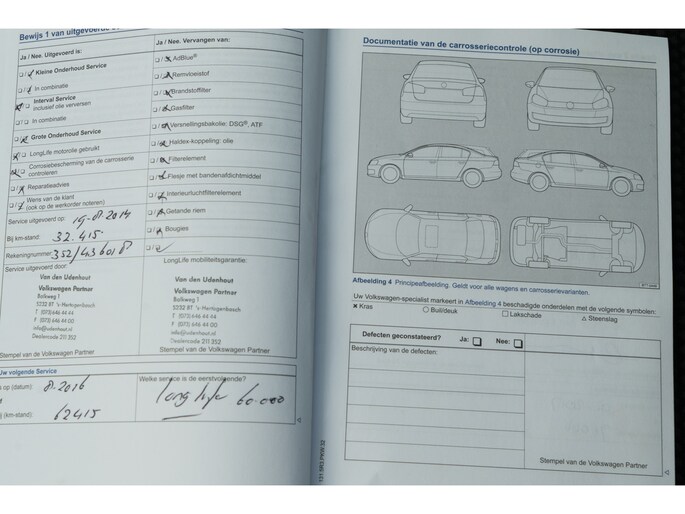 Bewijs 1 van uitgevoerde
Ja / Nee. Uitgevoerd is:
Ja / Nee. Vervangen van:
Kleine Onderhoud Service
AdBlue®
In combinatie
Remvloeistof
Interval Service
inclusief olie verversen
Brandstoffilter
In combinatie
Gasfilter
Grote Onderhoud Service
Versnellingsbakolie: DSG®, ATF
LongLife motorolie gebruikt
Haldex-koppeling: olie
Corrosiebescherming van de carrosserie
controleren
Filterelement
Flesje met bandenafdichtmiddel
Reparatieadvies
Interieurluchtfilterelement
Wens van de klant
(ook op de werkorder noteren)
Getande riem
Service uitgevoerd op: 19.8.2014
Bougies
Bij km-stand: 32.415
Rekeningnummer:
Service uitgevoerd door:
LongLife mobiliteitsgarantie:
Van den Udenhout
Volkswagen Partner
Balkweg 1
5232 BT 's-Hertogenbosch
T (073) 646 44 44
F (073) 646 44 00
info@udenhout.nl
Dealercode 211 352
Stempel van de Volkswagen Partner
Van den Udenhout
Volkswagen Partner
Balkweg 1
5232 BT 's-Hertogenbosch
T (073) 646 44 44
F (073) 646 44 00
info@udenhout.nl
Dealercode 211 352
Stempel van de Volkswagen Partner
Uw volgende Service
op (datum): 8.2016
Welke service is de eerstvolgende?
(km-stand): 62415
long life 60.000
Documentatie van de carrosseriecontrole (op corrosie)
Afbeelding 4 Principeafbeelding. Geldt voor alle wagens en carrosserievarianten.
Uw Volkswagen-specialist markeert in Afbeelding 4 beschadigde onderdelen met de volgende symbolen:
× Kras ○ Buil/deuk □ Lakschade △ Steenslag
Defecten geconstateerd? Ja: Nee:
Beschrijving van de defecten:
Stempel van de Volkswagen Partner